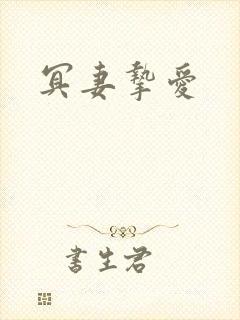 冥妻摯愛
書生君